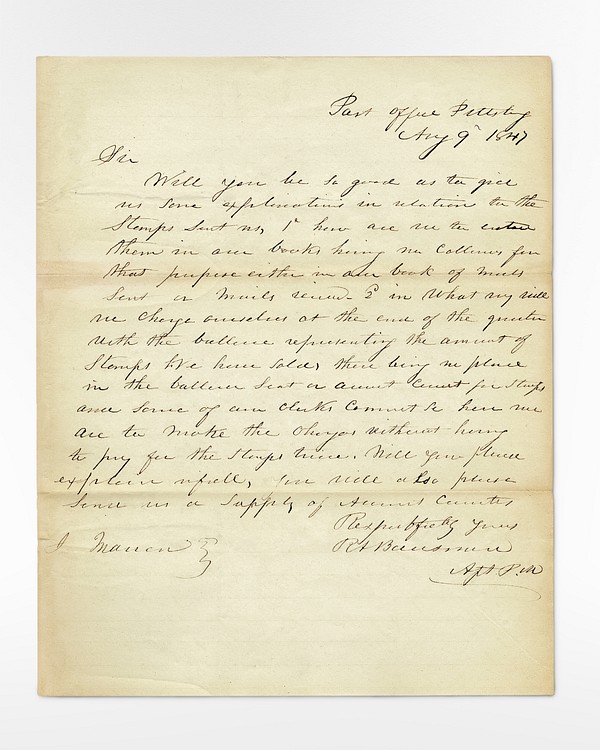 Post Office Pittsbg
Aug 9th 1847
Sir
Will you be so good as to give
us some explanations in relation to the
Stamps sent us, 1st how are we to enter
them in our books having no Collumn for
that purpose either in our book of mails
Sent or Mails recevd. 2d in What way will
we Charge ourselves at the end of the quarter
with the ballance representing the amount of
Stamps We have Sold, there being no place
in the ballance Seat or accnt Currt for Stamps
and some of our Clerks Cannot Se how we
are to Make the Charges without having
to pay for the Stamps twice. Will you please
explain as full, you will also please
Send us a Supply of Accounts Currents
Respectfully Yours
R H
Asst P.M
J Marron